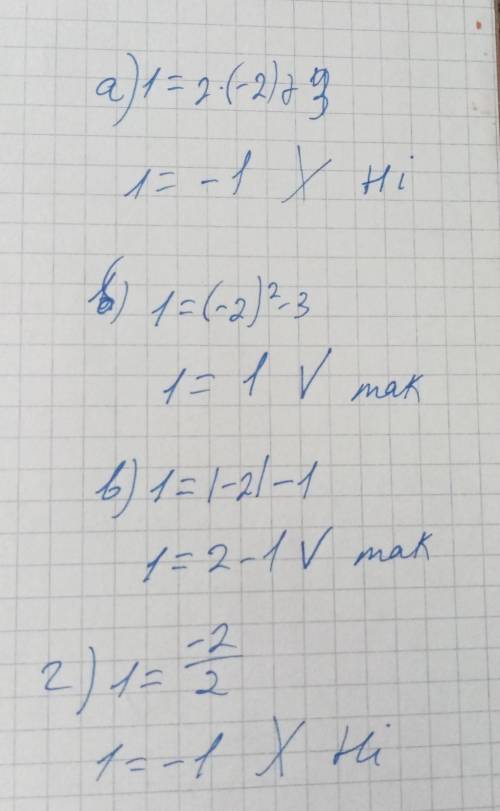 а) 1 = 2·(-2) + 3
1 = -1 X ні
б) 1 = (-2)² - 3
1 = 1 V так
в) 1 = |-2| - 1
1 = 2 - 1 V так
г) 1 = -2/2
1 = -1 X ні